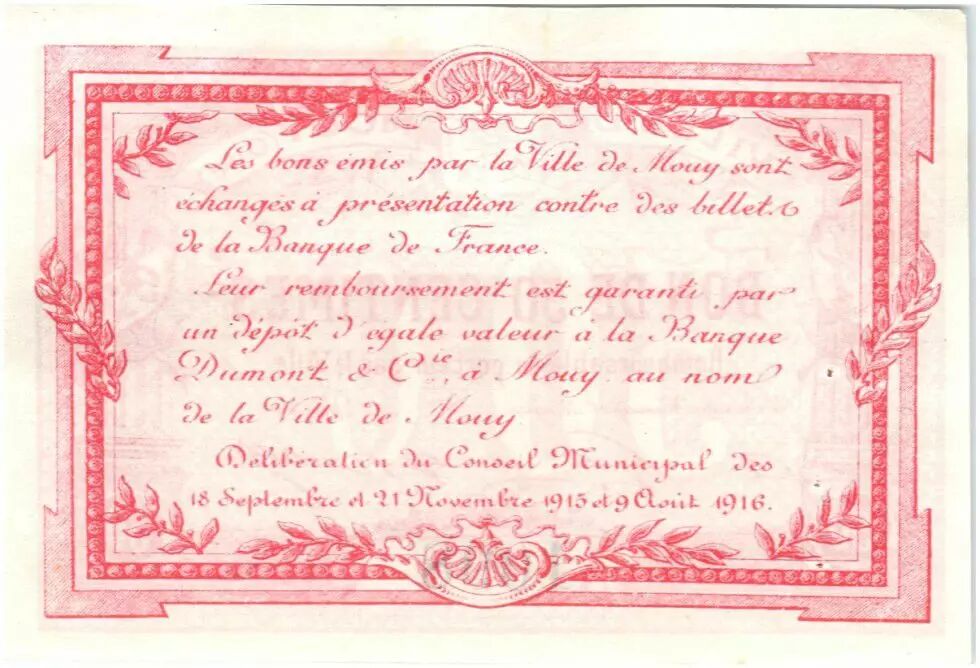 Les bons émis par la Ville de Mouy sont
échangés à présentation contre des billets
de la Banque de France.
Leur remboursement est garanti par
un dépôt d'egale valeur à la Banque
Dumont & Cie, à Mouy au nom
de la Ville de Mouy
Délibération du Conseil Municipal des
18 Septembre et 21 Novembre 1915 et 9 Août 1916.